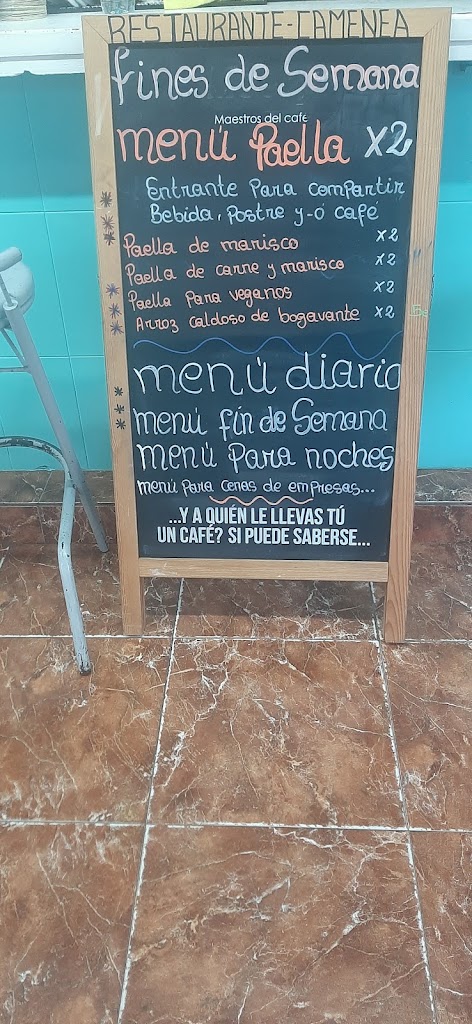 RESTAURANTE-CAMENEA
fines de Semana
Maestros del café
menú Paella x2
Entrante Para compartir
Bebida, Postre y-ó café
Paella de marisco x2
Paella de carne y marisco x2
Paella Para veganos x2
Arroz caldoso de bogavante x2
menú diario
menú fin de Semana
menú Para noches
menú Para cenas de empresas...
...Y A QUIÉN LE LLEVAS TÚ
UN CAFÉ? SI PUEDE SABERSE...